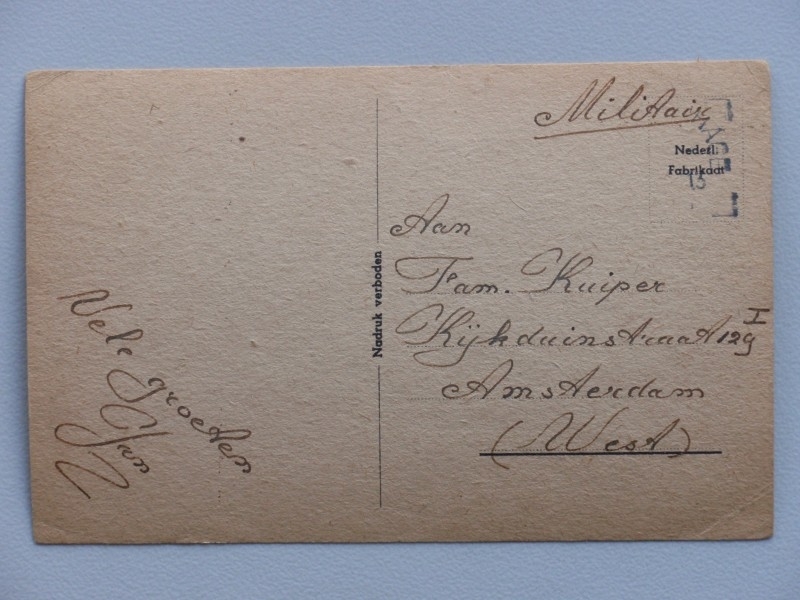 Militair
Nederl.
Fabrikaat
Aan
Fam. Kuiper
Kijkduinstraat 129 I
Amsterdam
(West)
Nadruk verboden
Vele groeten
Jan